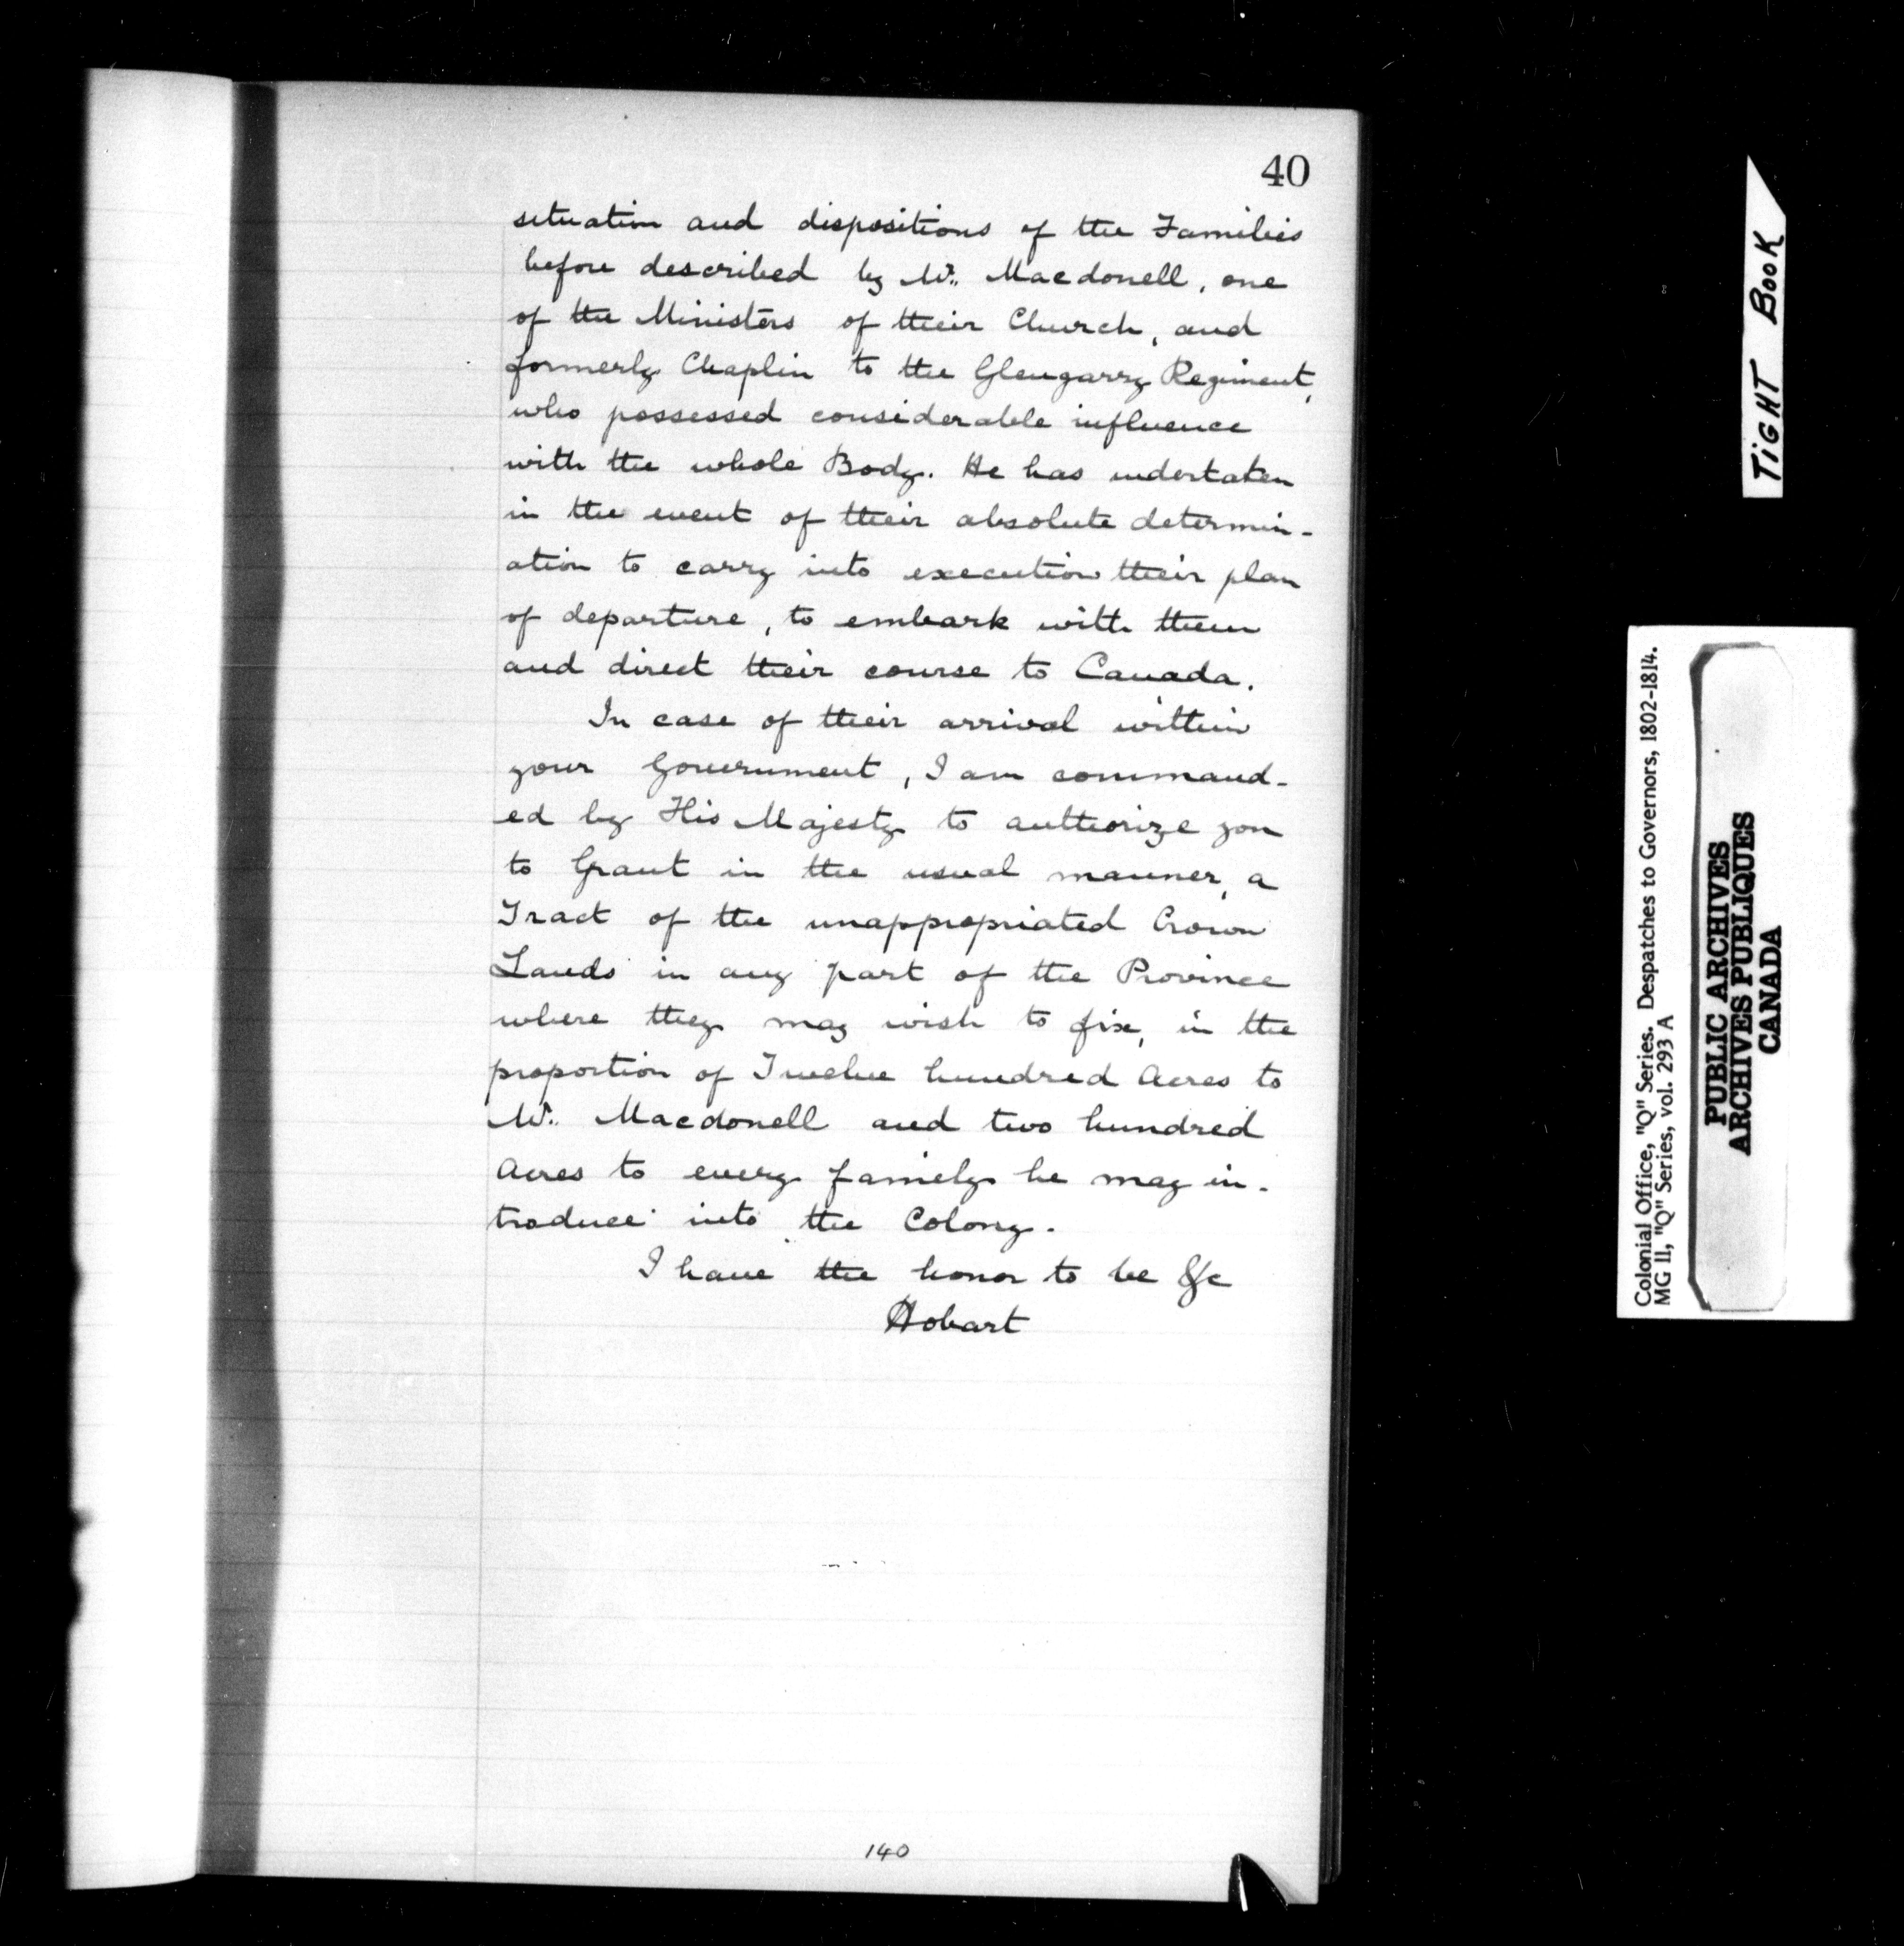 40
situation and dispositions of the Families
before described by Mr. Macdonell, one
of the Ministers of their Church, and
formerly Chaplin to the Glengarry Regiment,
who possessed considerable influence
with the whole Body. He has undertaken
in the event of their absolute determin-
ation to carry into execution their plan
of departure, to embark with them
and direct their course to Canada.
In case of their arrival within
your Government, I am command-
ed by His Majesty to authorize you
to Grant in the usual manner, a
Tract of the unappropriated Crown
Lands in any part of the Province
where they may wish to fix, in the
proportion of Twelve hundred Acres to
Mr. Macdonell and two hundred
Acres to every family he may in-
troduce into the Colony.
I have the honor to be &c
Hobart
140
TIGHT BOOK
Colonial Office, "Q" Series. Despatches to Governors, 1802-1814.
MG 11, "Q" Series, vol. 293 A
PUBLIC ARCHIVES
ARCHIVES PUBLIQUES
CANADA